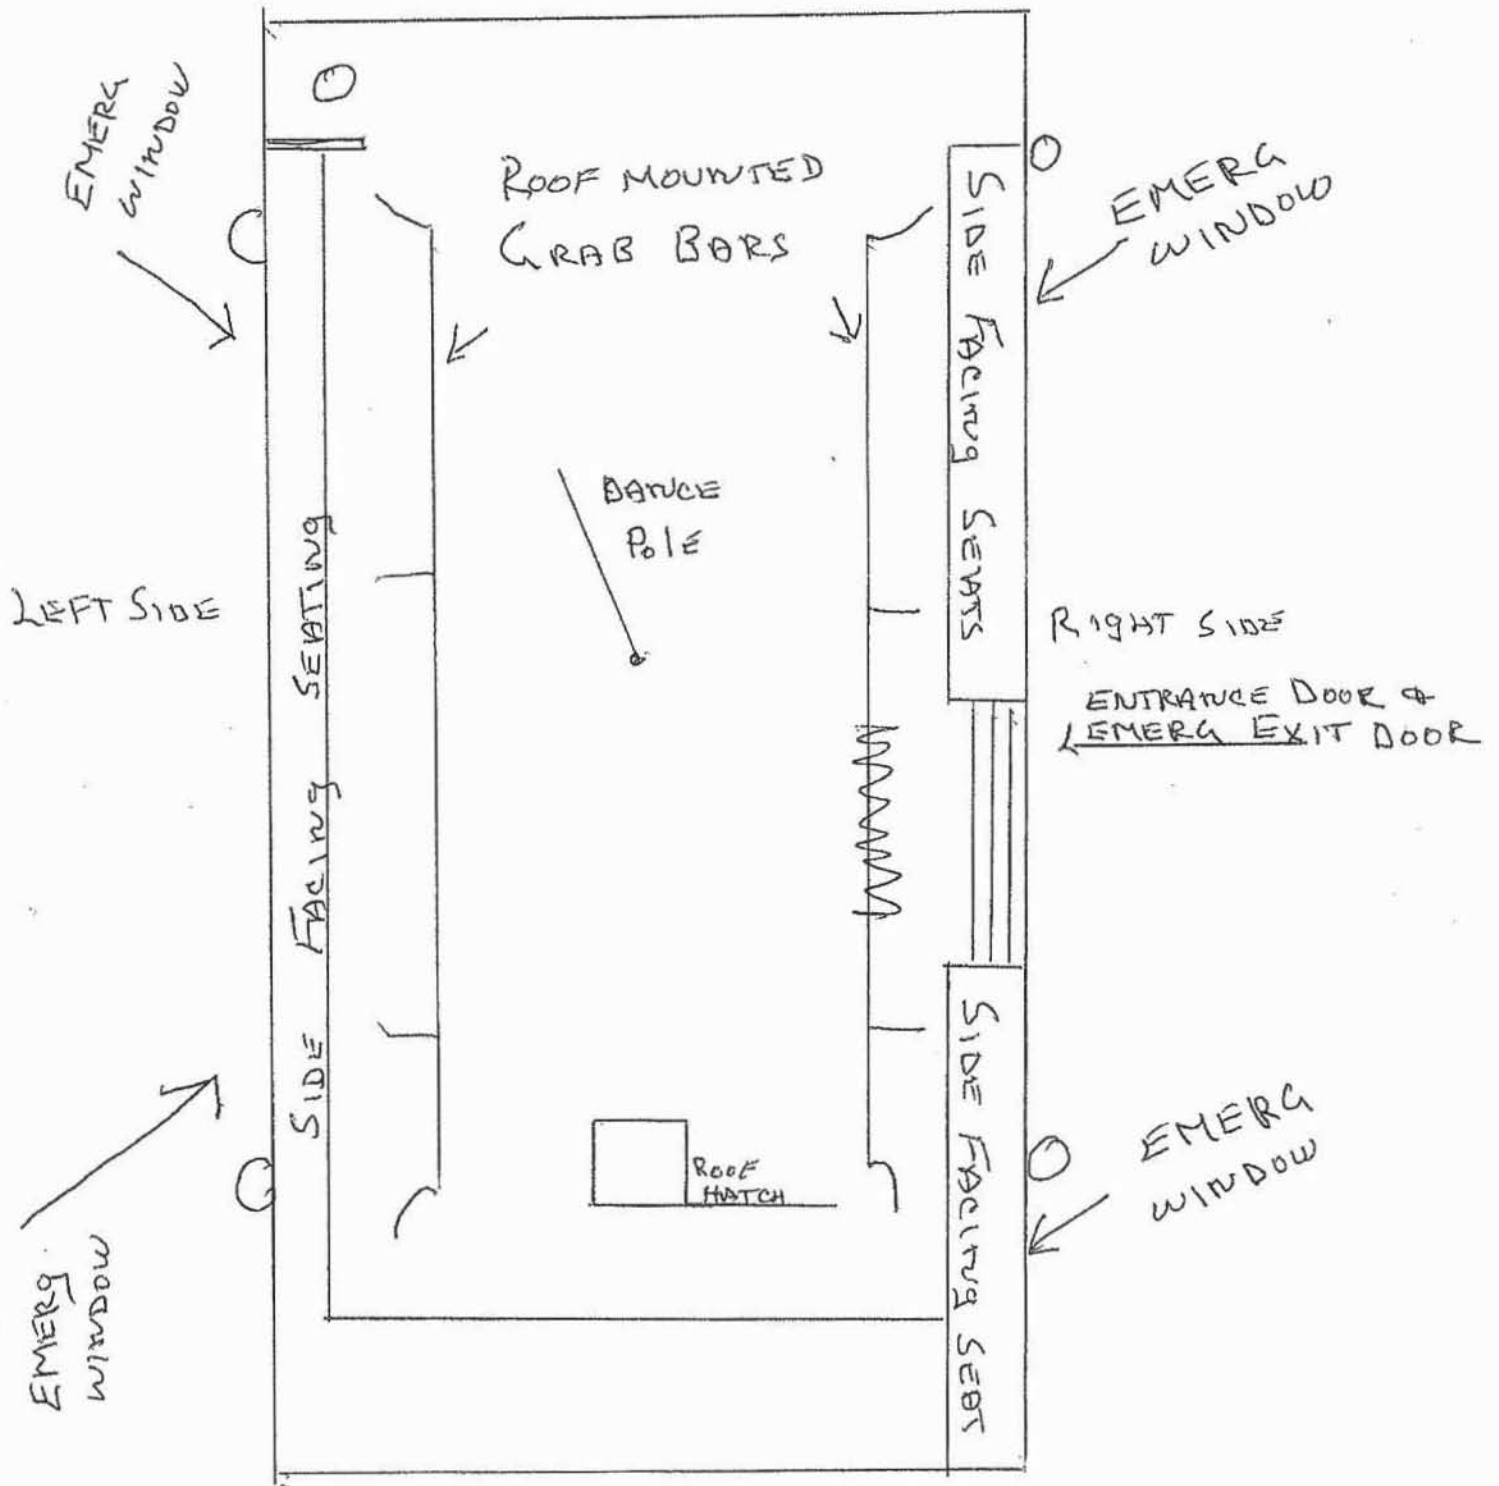 EMERG
WINDOW
ROOF MOUNTED
GRAB BARS
EMERG
WINDOW
SIDE FACING SEATS
DANCE
POLE
LEFT SIDE
SIDE FACING SEATING
RIGHT SIDE
ENTRANCE DOOR &
EMERG EXIT DOOR
ROOF
HATCH
SIDE FACING SEAT
EMERG
WINDOW
EMERG
WINDOW